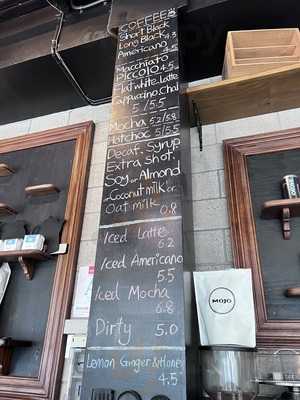 COFFEE
Short Black
Long Black 4.3
Americano
Macchiato
PICCOLO 4.5
Flat white. Latte
Cappuccino. Chai
5 / 5.5
Mocha 5.2/5.8
Hot choc 5/5.5
Decaf, Syrup
Extra Shot,
Soy or Almond
Coconut milk or
Oat milk 0.8
Iced Latte
6.2
Iced Americano
5.5
Iced Mocha
6.8
Dirty 5.0
Lemon Ginger & Honey
4.5
MOJO